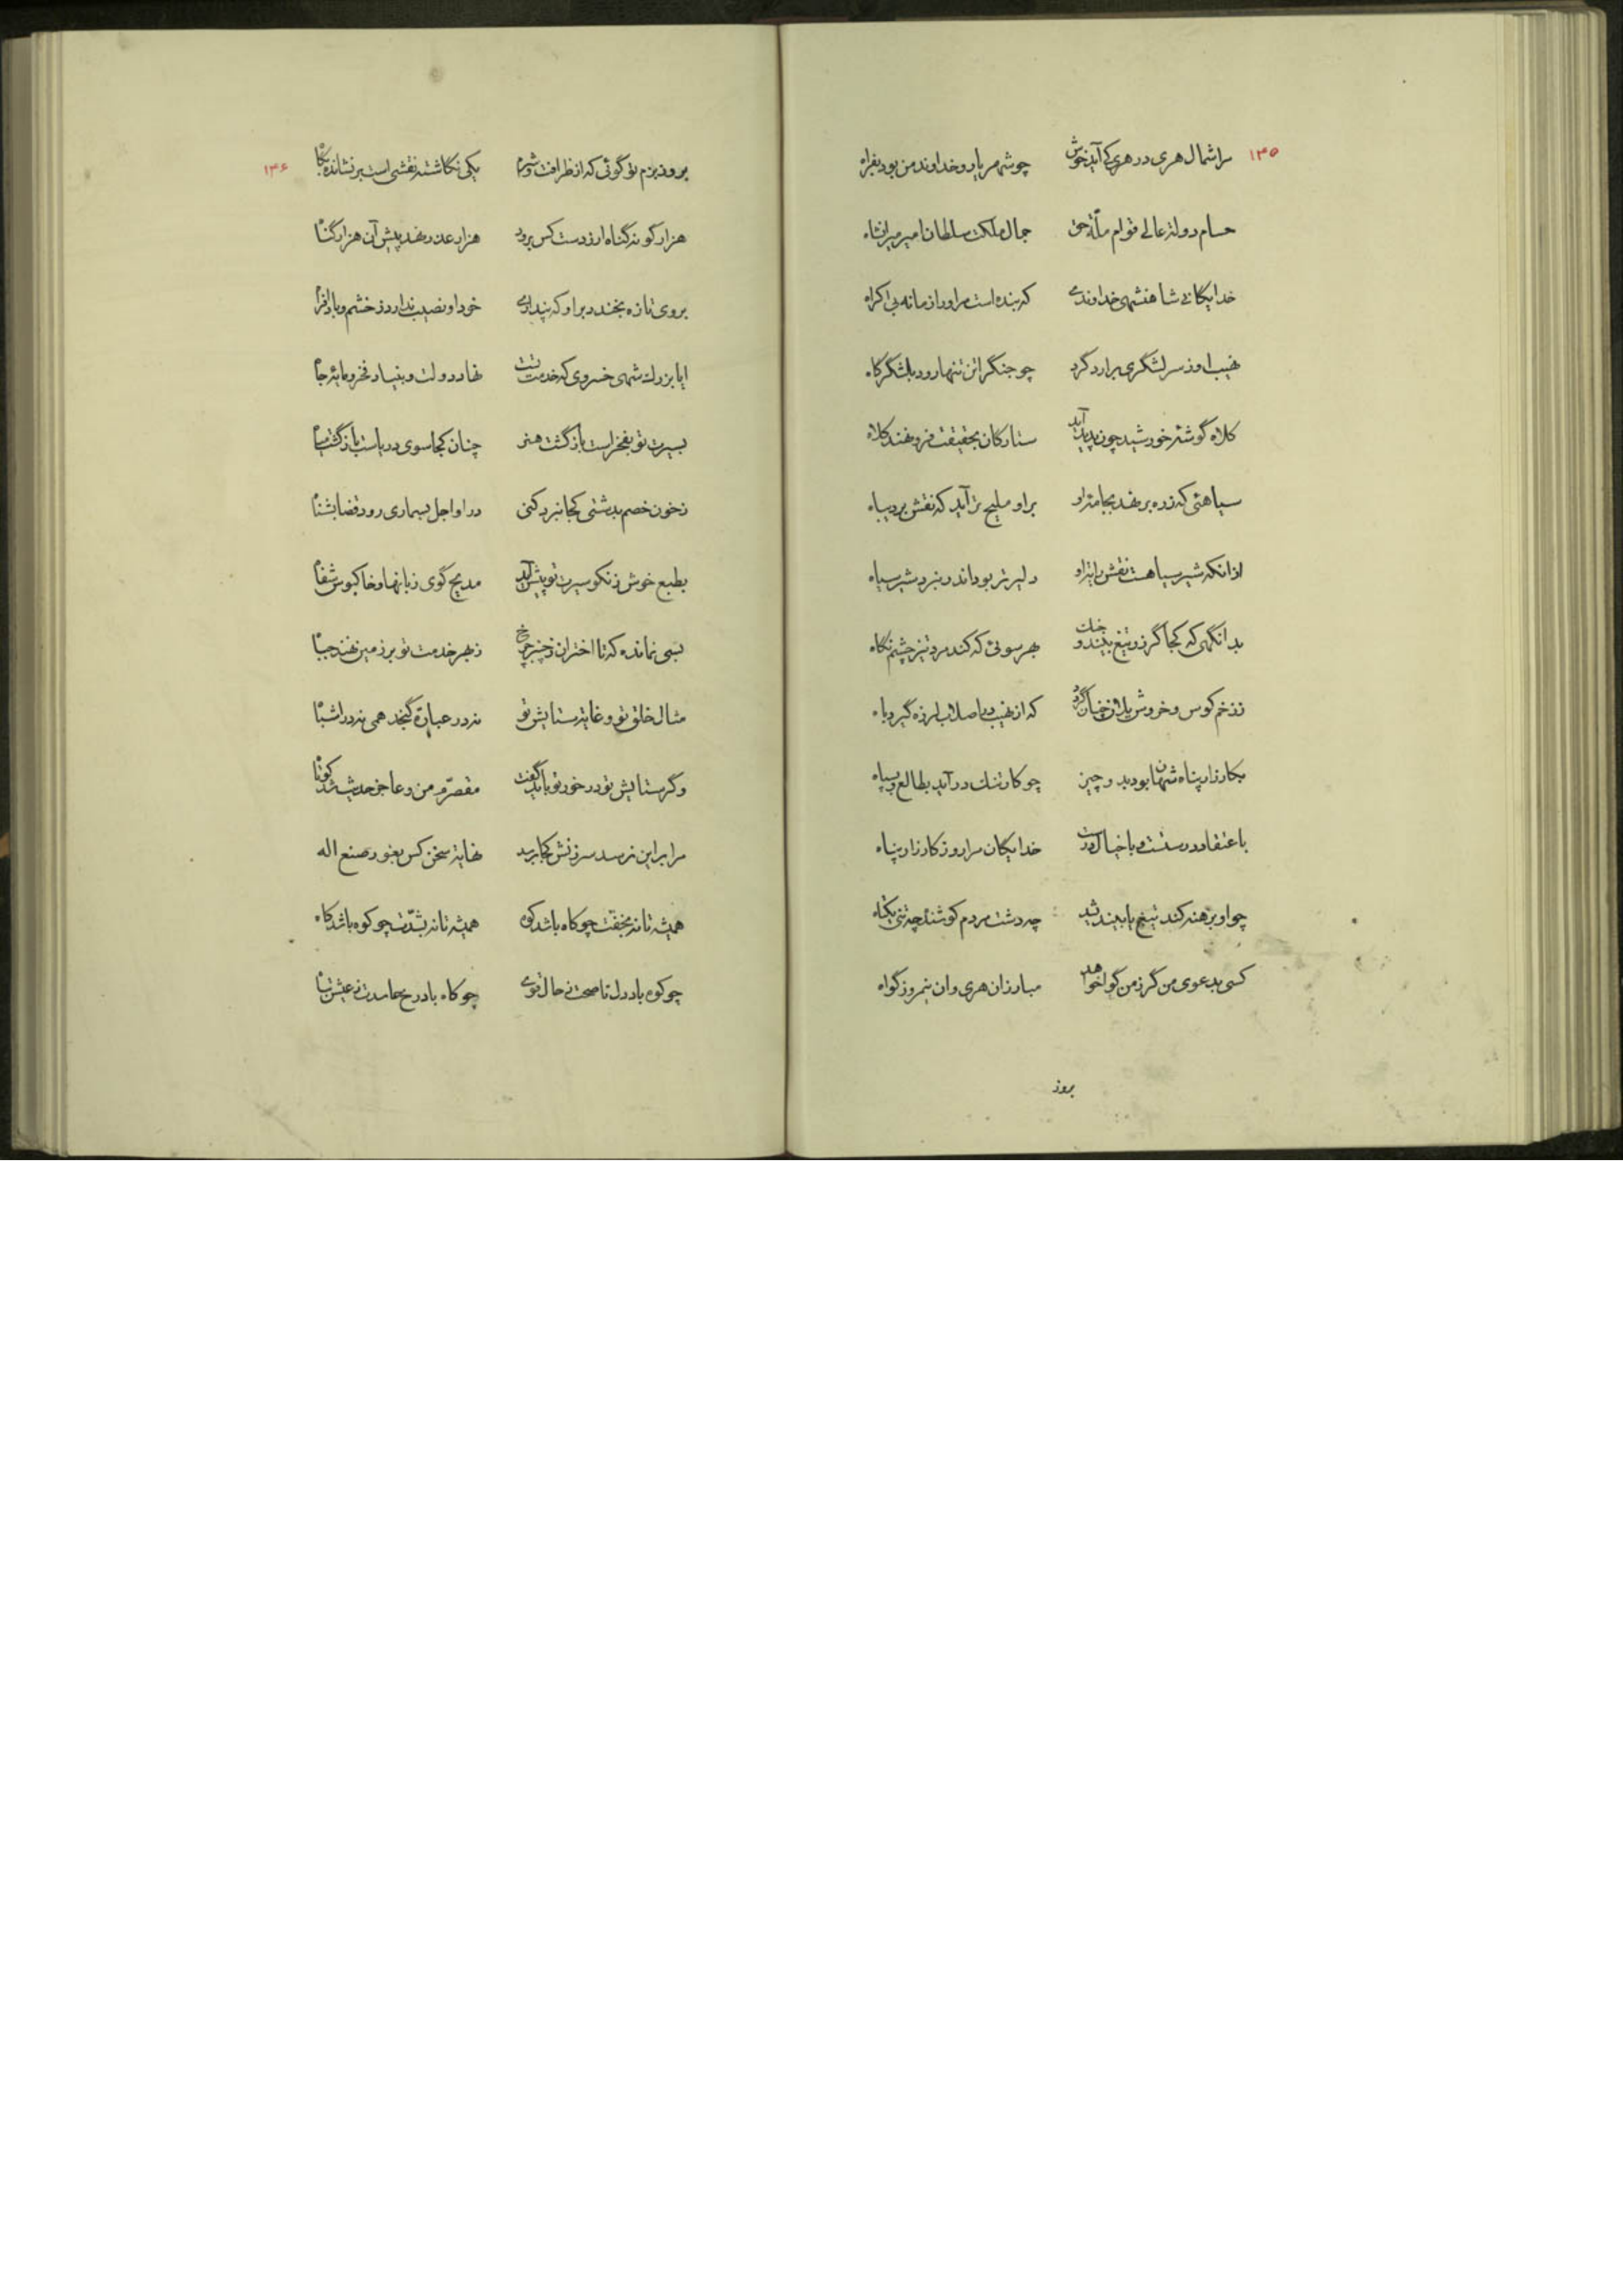 ۱۳۵
مرا شمال هری در هری که آید خوش چو شهریار و خداوند من بود بفراه
حسام دولة عالی قوام ملّة حق جمال ملکت سلطان امیر میرانشاه
خدایگانی شاهنشهی خداوندی که بنده است مر او را زمانه بی اکراه
نهیب او ز سر لشگری برآرد گرد چو جنگ را تن تنها رود بلشگرگاه
کلاه گوشهٔ خورشید چون پدید آید ستارگان بحقیقت فرو نهند کلاه
سیاهئی که زره برنهد بجامهٔ او بر او ملیح تر آید که نقش بر دیباه
از آنکه شیر سیاهست نقش رایة او دلیرتر بود اندر نبرد شیر سیاه
بدانگهی که کجا گرز و تیغ بیند و خشت بهر سوئی که کند مرد تیز چشم نگاه
ز زخم کوس و خروش یلان چنان گردد که از نهیب در اصلاب لرزه گیرد باه
بکارزار پناه شهان بود بدو چیز چو کار تنگ درآید بطالع و بسپاه
باعتقاد درستست و با خیال درست خدایگان مرا روز کارزار پناه
چو او برهنه کند تیغ یا ببندد شید چه دشت مردم کوشنده چه تنی یکتاه
کسی بدعوی من گر ز من گوا خواهد مبارزان هری وان نیمروز گواه
بروز
۱۳۶
بروز بزم تو گوئی که از ظرافت و شرم یکی نگاشته نقشی است برنشانده بگاه
هزار گونه گناه ار ز دست کس برود هزار عذر نهد پیش آن هزار گناه
بروی تازه بخندد بر او که پنداری خود او نصیب ندارد ز خشم و بادافراه
ایا بزرگ شهی خسروی که خدمت تست نهاد دولت و بنیاد فخر و مایهٔ جاه
بسیرت تو بفخر است بازگشت هنر چنان کجا سوی دریاست بازگشت میاه
ز خون خصم بدشتی کجا نبرد کنی در او اجل بسماری رود قضا بشناه
بطبع خوش ز نکو سیرت تو پیش آید مدیح گوی زبانها و خاکبوس شفاه
بسی نمانده که تا اختران ز چنبر چرخ ز بهر خدمت تو بر زمین نهند جباه
مثال خلق تو و غایة ستایش تو نه در عبارة گنجد همی نه در اشباه
وگر ستایش تو درخور تو باید گفت مقصرم من و عاجز حدیث شد کوتاه
مرا بر این نرسد سرزنش کجا نرسد نهایة سخن کس بغور صنع اله
همیشه تا نه بخفّت چو کاه باشد کوه همیشه تا نه بشدّت چو کوه باشد کاه
چو کوه باد دل ناصحت ز حال قوی چو کاه باد رخ حاسدت ز عیش تباه